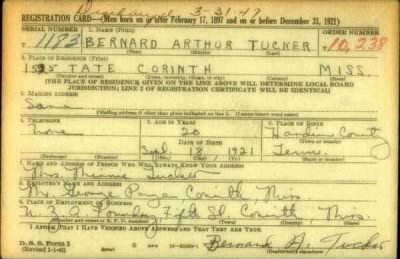 Discharged 3-31-47
REGISTRATION CARD—(Men born on or after February 17, 1897 and on or before December 31, 1921)
SERIAL NUMBER 1. NAME (Print) ORDER NUMBER
1173 BERNARD ARTHUR TUCKER 10,238
2. PLACE OF RESIDENCE (Print)
TATE CORINTH MISS.
(Number and street) (Town, township, village, or city) (County) (State)
[THE PLACE OF RESIDENCE GIVEN ON THE LINE ABOVE WILL DETERMINE LOCAL BOARD
JURISDICTION; LINE 2 OF REGISTRATION CERTIFICATE WILL BE IDENTICAL]
3. MAILING ADDRESS
Same
[Mailing address if other than place indicated on line 2. If same insert word same]
4. TELEPHONE 5. AGE IN YEARS 6. PLACE OF BIRTH
None 20 Hardin County
DATE OF BIRTH
Sept. 18, 1921 Tenn.
7. NAME AND ADDRESS OF PERSON WHO WILL ALWAYS KNOW YOUR ADDRESS
Mrs. Minnie Tucker
8. EMPLOYER'S NAME AND ADDRESS
Mr. George Corinth, Miss.
9. PLACE OF EMPLOYMENT OR BUSINESS
Foundry Fifth St. Corinth, Miss.
I AFFIRM THAT I HAVE VERIFIED ABOVE ANSWERS AND THAT THEY ARE TRUE.
D. S. S. Form 1
(Revised 1-1-42) Bernard A. Tucker